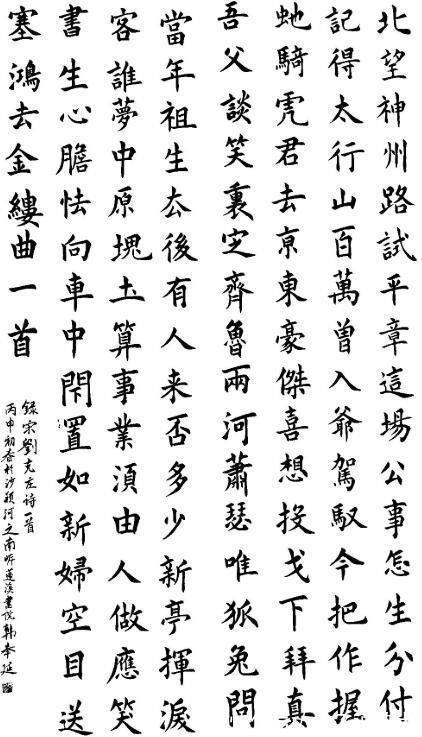 北望神州路試平章這場公事怎生分付
記得太行山百萬曾入爺駕馭今把作握
虵騎虎君去亰東豪傑喜想投戈下拜真
吾父談笑裏定齊魯兩河蕭瑟唯狐兔問
當年祖生去後有人来否多少新亭揮淚
客誰夢中原塊土算事業湏由人做應笑
書生心膽怯向車中閇置如新婦空目送
塞鴻去金縷曲一首
錄宋劉克庄诗一首
丙申初春於沙颍河之南蓮溪書院韩奉延